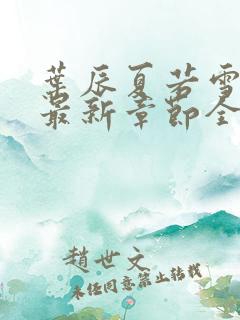 葉辰夏若雪
最新章節全
趙世文
未经同意禁止转载